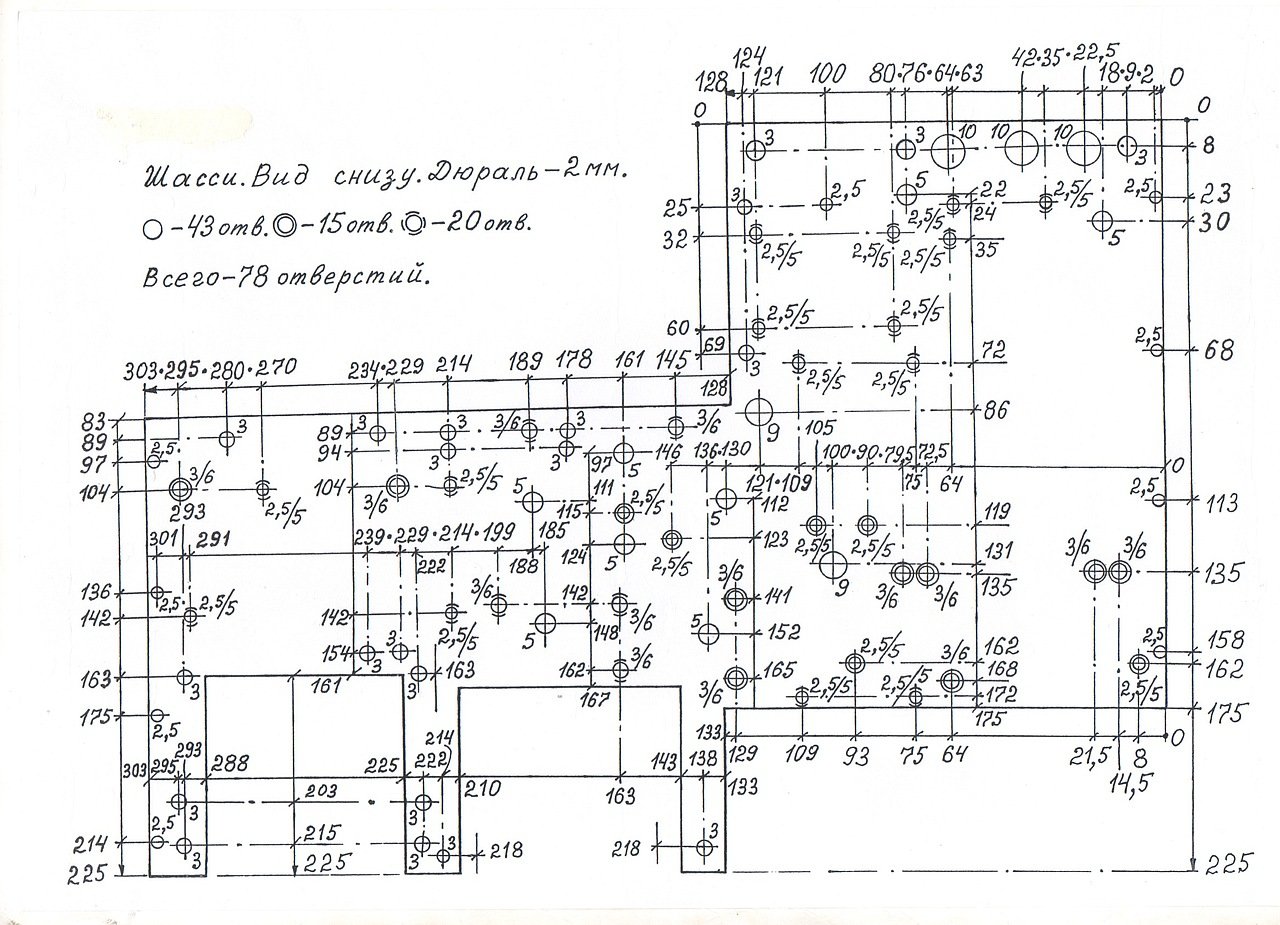 124
42·35·22,5
128 121 100 80·76·64·63 18·9·2 0
0 0
3 3 10 10 10 3 8
Шасси. Вид снизу. Дюраль – 2 мм.
5 22 2,5/5 2,5 23
25 3 2,5 2,5/5 24
-43 отв. -15 отв. -20 отв.
5 30
32 2,5/5 2,5/5 2,5/5 35
Всего – 78 отверстий.
60 2,5/5 2,5/5
69 3 2,5 68
303·295·280·270 234·229 214 189 178 161 145 2,5/5 2,5/5 72
128
83 86
89 3 89 3 3 3/6 3 3/6 9 105
97 2,5 94 3 3 97 5 146 136·130 100·90·79,5 72,5 0
3/6 121·109 75 64
104 2,5/5 104 3/6 2,5/5 5 111 2,5/5 5 112 2,5 113
293 115
301 291 239·229·214·199 185 124 5 2,5/5 123 2,5/5 2,5/5 119
222 188 3/6 9 131 3/6 3/6
136 2,5 2,5/5 3/6 142 3/6 3/6 135 135
142 142 2,5/5 5 148 3/6 141
154 3 3 5 152 2,5 158
163 3 161 3 163 162 3/6 3/6 165 2,5/5 3/6 162 162
167 168 2,5/5
175 2,5 2,5/5 2,5/5 172 175
175
133 129 109 93 75 64 21,5 8 0
293 214 14,5
303 295 288 225 222 210 163 143 138 133
3 203 3
214 2,5 3 215 3 3 218 218 3
225 225 225